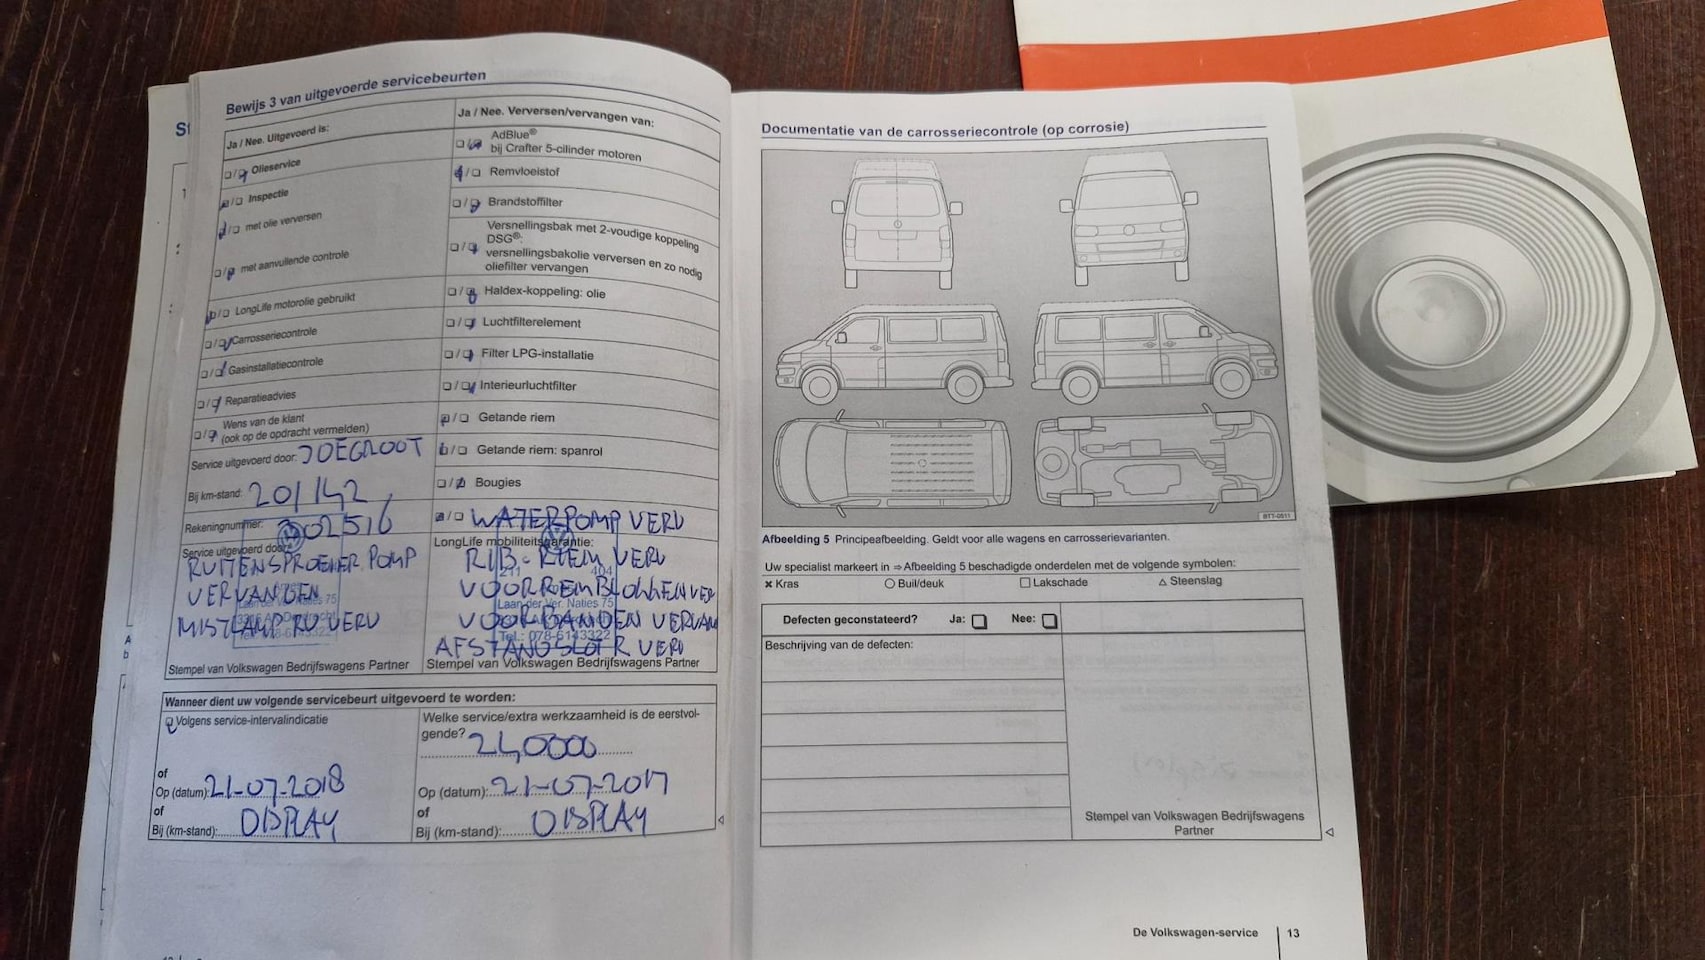 Bewijs 3 van uitgevoerde servicebeurten
Ja / Nee. Uitgevoerd is:
Olieservice
Inspectie
met olie verversen
met aanvullende controle
LongLife motorolie gebruikt
Carrosseriecontrole
Gasinstallatiecontrole
Reparatieadvies
Wens van de klant
(ook op de opdracht vermelden)
Service uitgevoerd door: JDEGROOT
Bij km-stand: 201142
Rekeningnummer: 302516
Service uitgevoerd door:
RUITENSPROEIER POMP
VERVANGEN
Laan der Ver. Naties 75
MISTLAMP RV VERV
Stempel van Volkswagen Bedrijfswagens Partner
Ja / Nee. Verversen/vervangen van:
AdBlue®
bij Crafter 5-cilinder motoren
Remvloeistof
Brandstoffilter
Versnellingsbak met 2-voudige koppeling
DSG®:
versnellingsbakolie verversen en zo nodig
oliefilter vervangen
Haldex-koppeling: olie
Luchtfilterelement
Filter LPG-installatie
Interieurluchtfilter
Getande riem
Getande riem: spanrol
Bougies
WATERPOMP VERV
LongLife mobiliteitsgarantie:
RIB-RIEM VERV
211 404
VOORREMBLOKKEN VER
Laan der Ver. Naties 75
VOORBANDEN VERVAN
Tel.: 078-6143322
AFSTANGSLOFR VERV
Stempel van Volkswagen Bedrijfswagens Partner
Wanneer dient uw volgende servicebeurt uitgevoerd te worden:
Volgens service-intervalindicatie
of
Op (datum): 21-07-2018
of
Bij (km-stand): DISPLAY
Welke service/extra werkzaamheid is de eerstvol-
gende?
Op (datum): 21-07-2017
of
Bij (km-stand): DISPLAY
Documentatie van de carrosseriecontrole (op corrosie)
BTT-0511
Afbeelding 5 Principeafbeelding. Geldt voor alle wagens en carrosserievarianten.
Uw specialist markeert in ⇒ Afbeelding 5 beschadigde onderdelen met de volgende symbolen:
× Kras ○ Buil/deuk □ Lakschade △ Steenslag
Defecten geconstateerd? Ja: Nee:
Beschrijving van de defecten:
Stempel van Volkswagen Bedrijfswagens
Partner
De Volkswagen-service 13